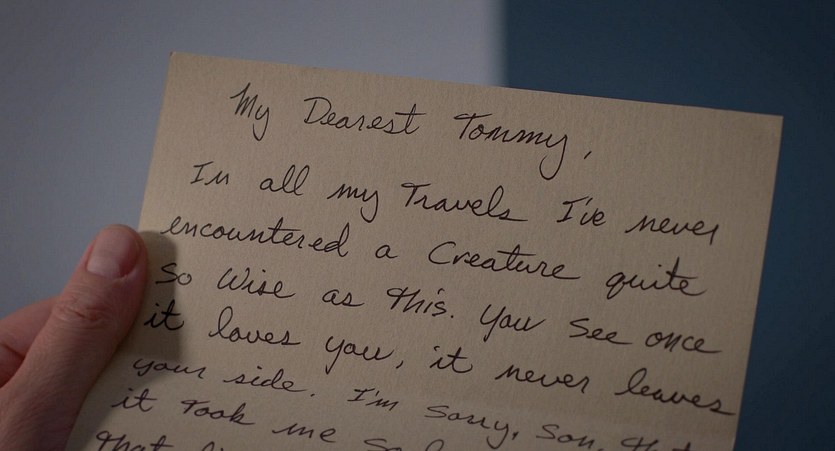 My Dearest Tommy,
In all my Travels I've never
encountered a Creature quite
So Wise as this. You See once
it loves you, it never leaves
your side. I'm Sorry, Son, that
it took me so
that